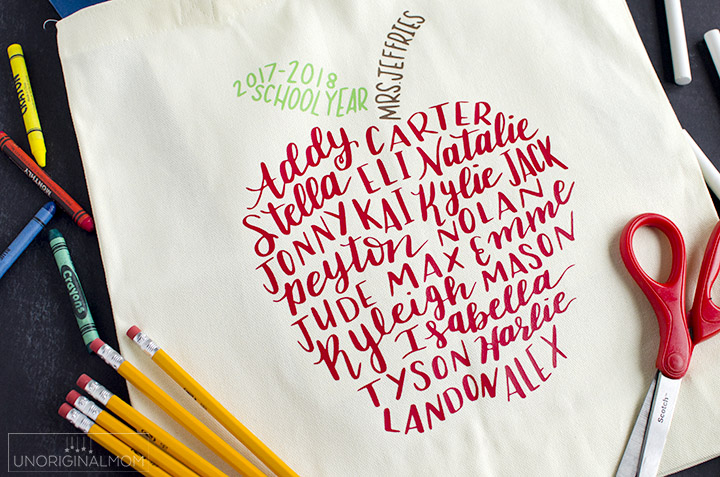 2017-2018
SCHOOL YEAR
MRS. JEFFRIES
Addy CARTER
Stella ELI Natalie
JONNY KAI Kylie JACK
peyton NOLAN
JUDE MAX Emme
Ryleigh MASON
Isabella
TYSON Harlie
LANDON ALEX
Crayons
Scotch
UNORIGINALMOM